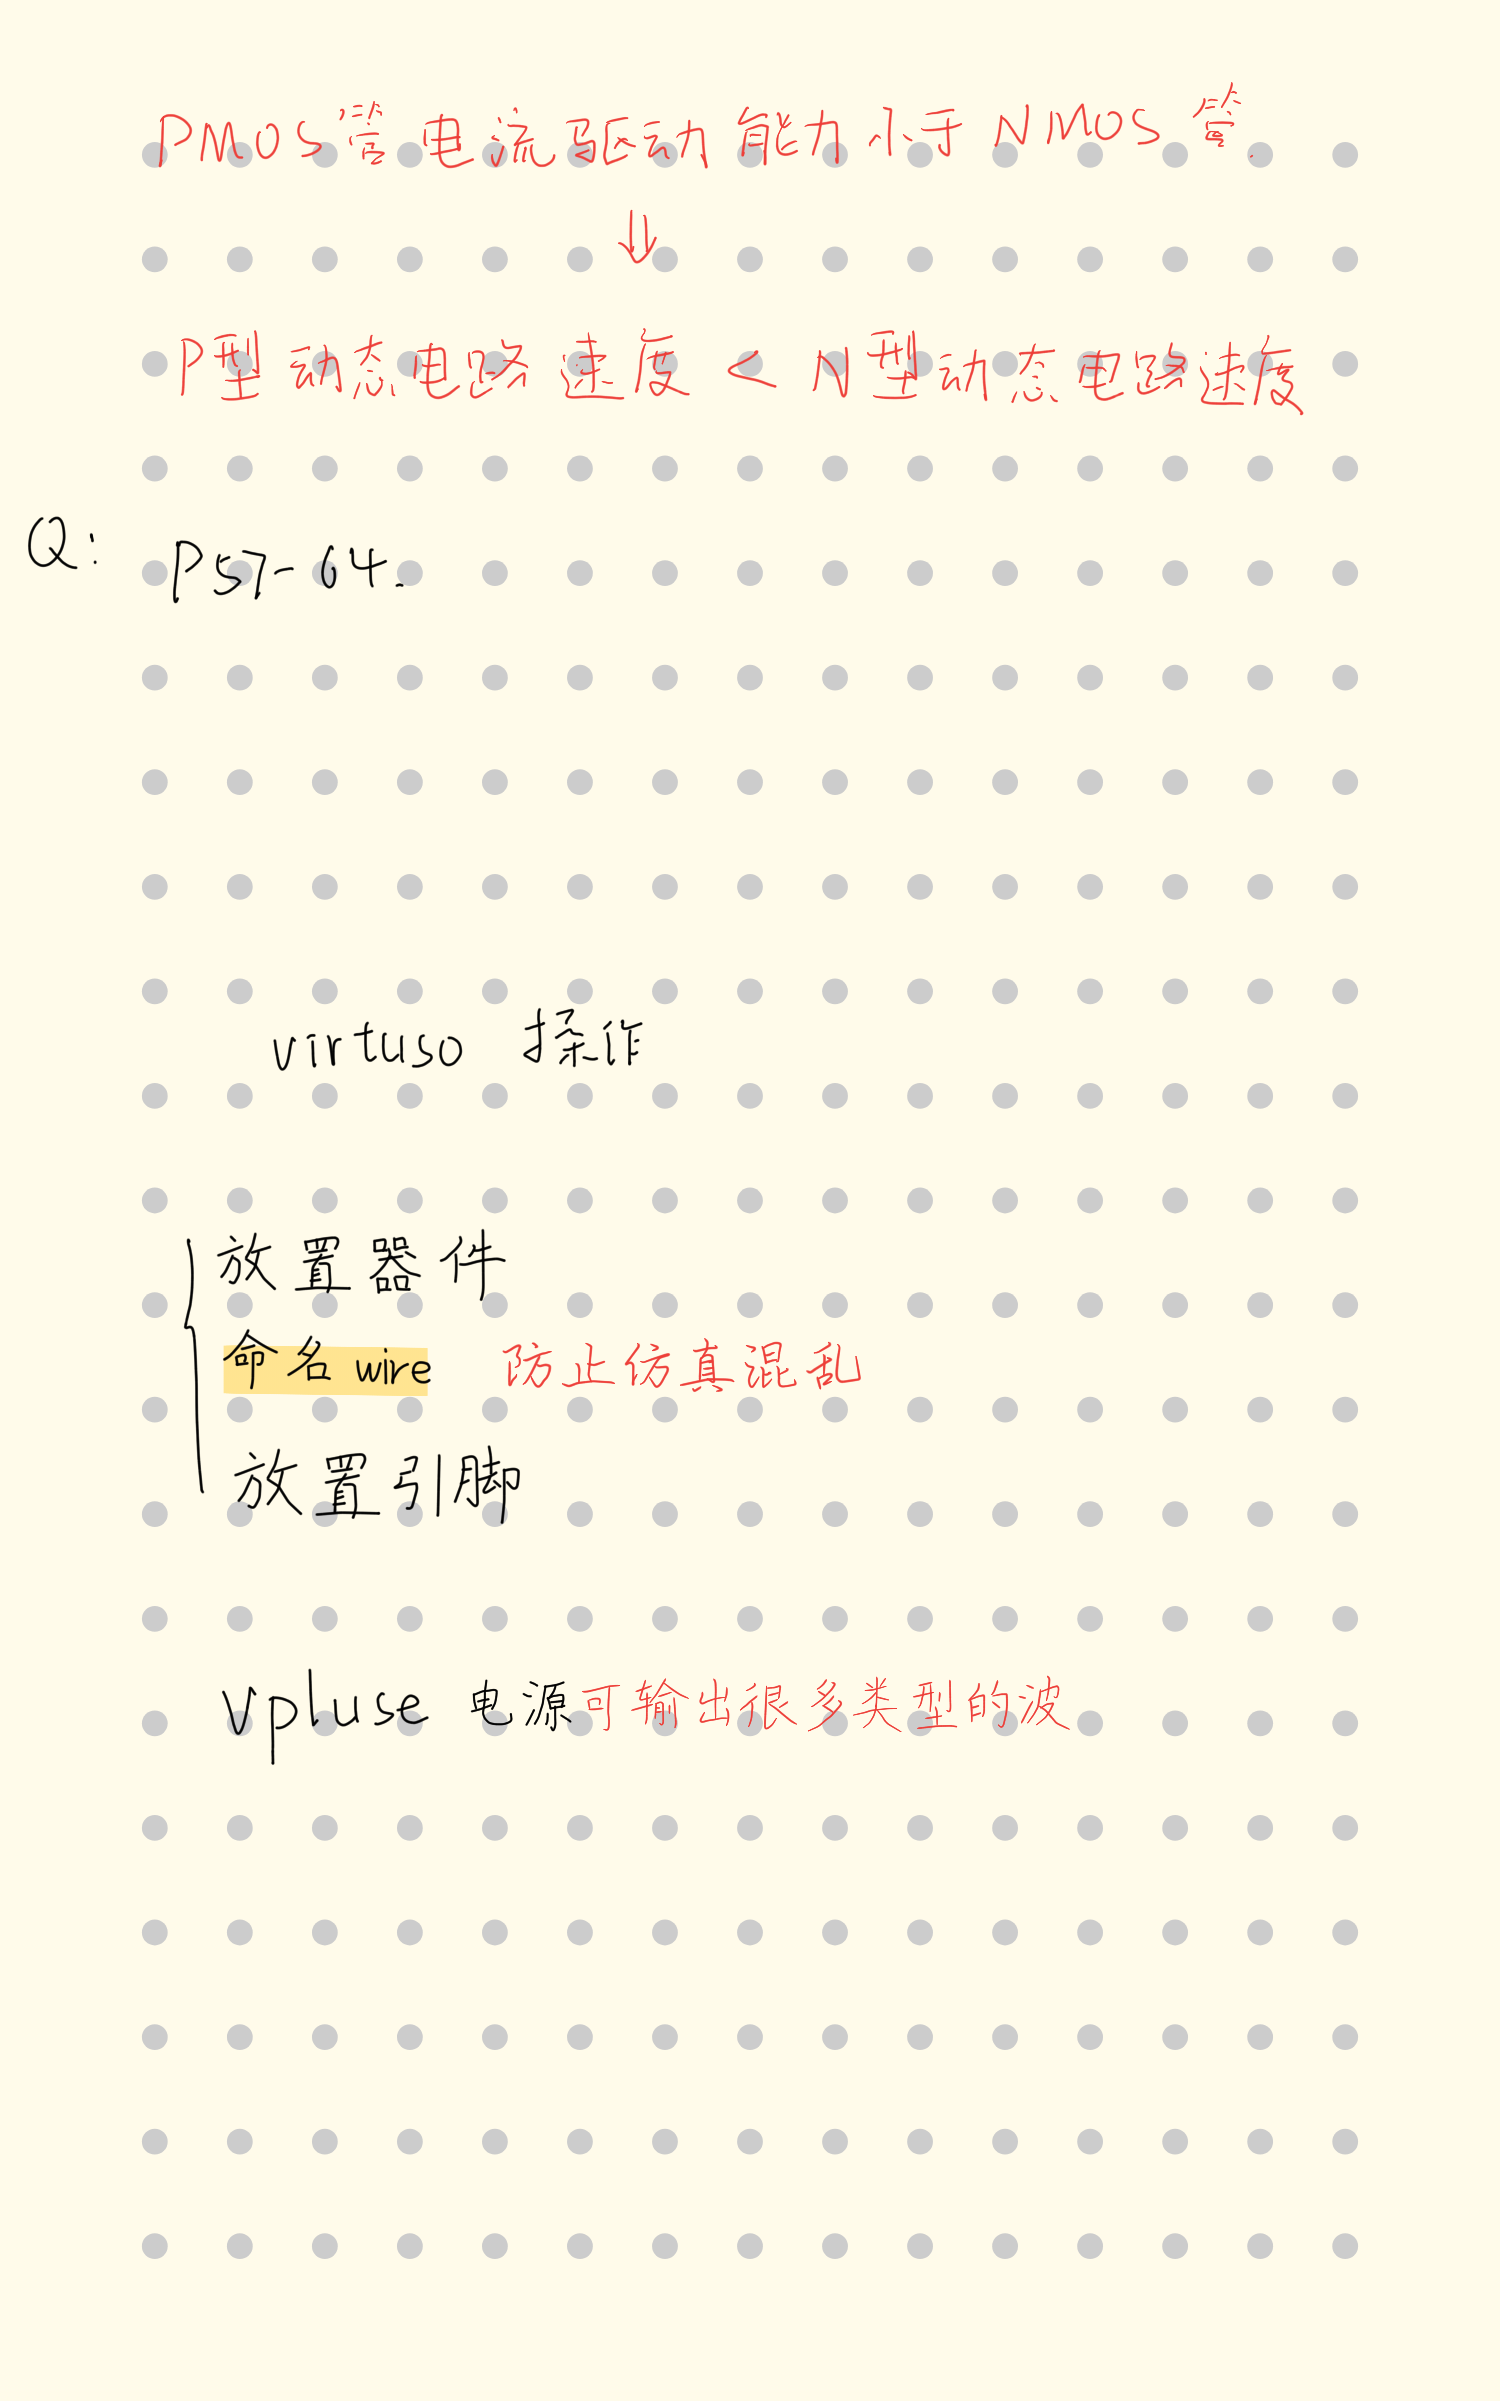 PMOS管电流驱动能力小于NMOS管.
⇓
P型动态电路速度 < N型动态电路速度
Q: P57-64.
virtuso 操作
放置器件
命名wire 防止仿真混乱
放置引脚
Vpluse 电源可输出很多类型的波